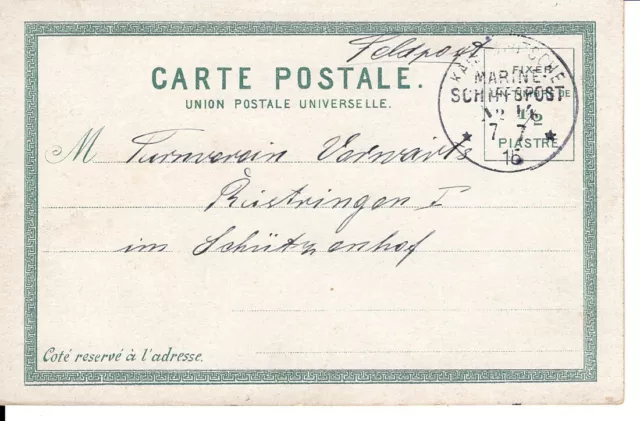 Feldpost
CARTE POSTALE.
UNION POSTALE UNIVERSELLE.
FIXER
PIASTRE
MARINE-
SCHIFFSPOST
7 7
15
M Turnverein Vorwärts
Rüstringen I
im Schützenhof
Coté reservé à l'adresse.